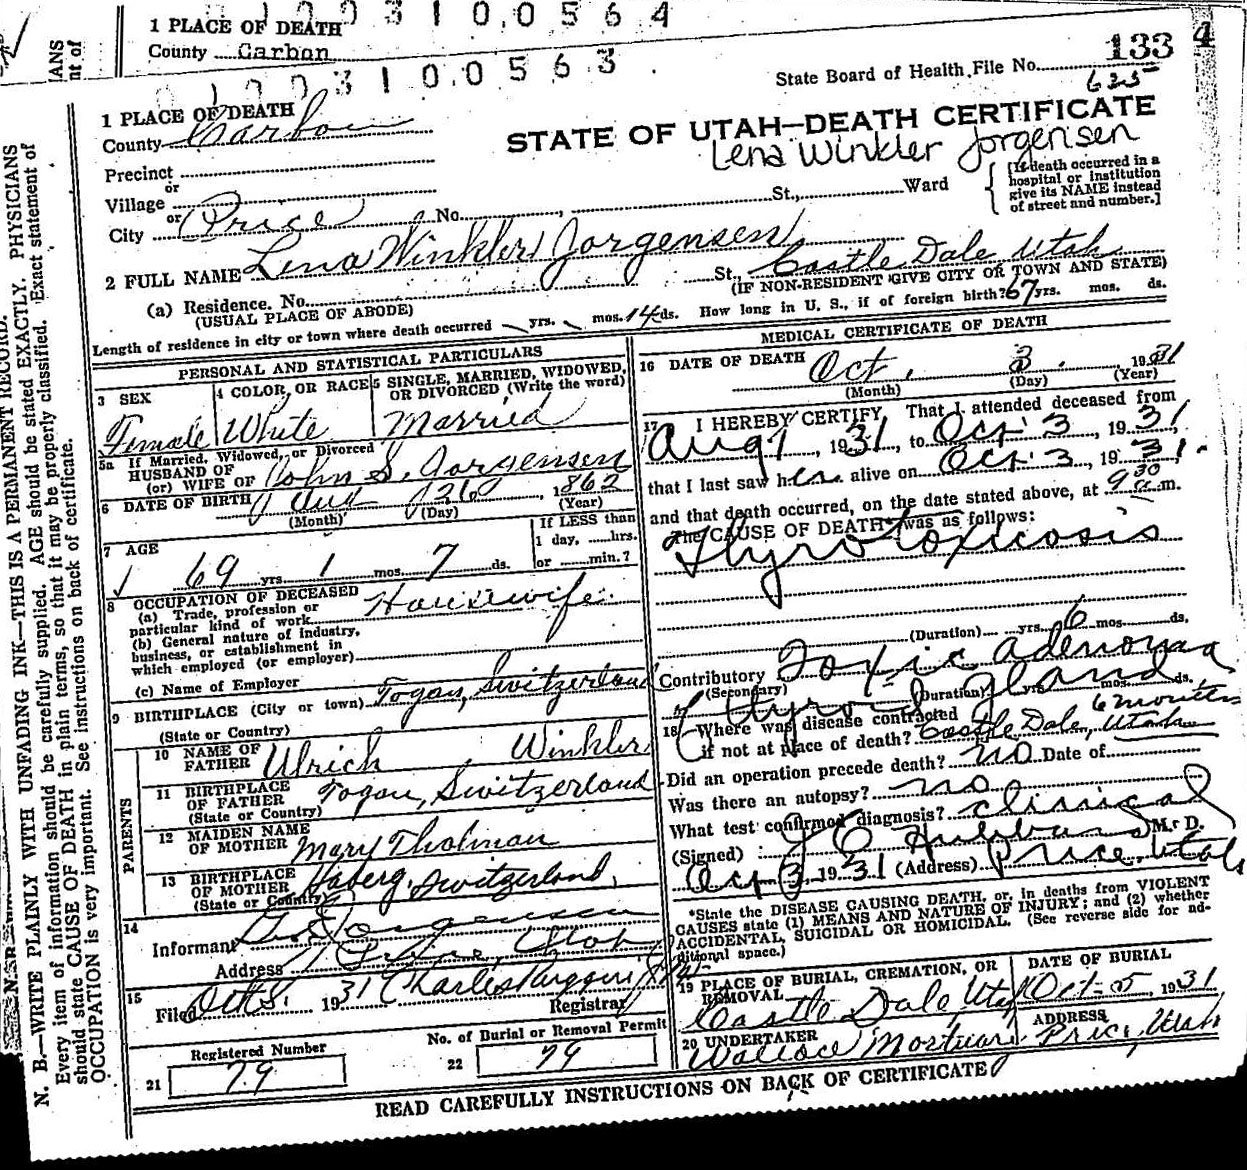 1 0 0 3 1 0 0 5 6 4
1 PLACE OF DEATH
County Carbon
1 0 0 3 1 0 0 5 6 3
133 4
State Board of Health File No.
625
1 PLACE OF DEATH
County Carbon
STATE OF UTAH—DEATH CERTIFICATE
Lena Winkler Jorgensen
Precinct
or
Village
or
City Price No. St., Ward
[If death occurred in a hospital or institution give its NAME instead of street and number.]
2 FULL NAME Lena Winkler Jorgensen
(a) Residence. No. St., Castle Dale Utah
(USUAL PLACE OF ABODE) (IF NON-RESIDENT GIVE CITY OR TOWN AND STATE)
Length of residence in city or town where death occurred yrs. mos. 14 ds. How long in U. S., if of foreign birth? 67 yrs. mos. ds.
PERSONAL AND STATISTICAL PARTICULARS
3 SEX
Female
4 COLOR, OR RACE
White
5 SINGLE, MARRIED, WIDOWED, OR DIVORCED (Write the word)
Married
5a If Married, Widowed, or Divorced
HUSBAND OF
(or) WIFE OF John S. Jorgensen
6 DATE OF BIRTH Aug 26, 1862
(Month) (Day) (Year)
7 AGE
69 yrs. 1 mos. 7 ds.
If LESS than
1 day, hrs.
or min.?
8 OCCUPATION OF DECEASED
(a) Trade, profession or particular kind of work Housewife
(b) General nature of industry, business, or establishment in which employed (or employer)
(c) Name of Employer
9 BIRTHPLACE (City or town) Switzerland
(State or Country)
PARENTS
10 NAME OF FATHER Ulrich Winkler
11 BIRTHPLACE OF FATHER Switzerland
(State or Country)
12 MAIDEN NAME OF MOTHER Mary Tholman
13 BIRTHPLACE OF MOTHER Haberg, Switzerland,
(State or Country)
14
Informant Jorgensen
Address Price, Utah
15
Filed Oct 8, 1931 Charles
Registrar
Registered Number
21 79
No. of Burial or Removal Permit
22 79
MEDICAL CERTIFICATE OF DEATH
16 DATE OF DEATH Oct. 3. 1931
(Month) (Day) (Year)
17 I HEREBY CERTIFY, That I attended deceased from
Aug 1, 1931, to Oct 3, 1931
that I last saw her alive on Oct 3, 1931.
and that death occurred, on the date stated above, at 9 30 a.m.
The CAUSE OF DEATH* was as follows:
Thyrotoxicosis
(Duration) yrs. 6 mos. ds.
Contributory Toxic adenoma
(Secondary) Thyroid gland
(Duration) yrs. mos. ds.
6 months
18 Where was disease contracted
if not at place of death? Castle Dale, Utah
Did an operation precede death? no Date of
Was there an autopsy? no
What test confirmed diagnosis? clinical
(Signed) M. D.
Oct 3, 1931 (Address) Price, Utah
*State the DISEASE CAUSING DEATH, or, in deaths from VIOLENT CAUSES state (1) MEANS AND NATURE OF INJURY; and (2) whether ACCIDENTAL, SUICIDAL OR HOMICIDAL. (See reverse side for additional space.)
19 PLACE OF BURIAL, CREMATION, OR REMOVAL
Castle Dale, Utah
DATE OF BURIAL
Oct. 5, 1931
20 UNDERTAKER
Wallace Mortuary
ADDRESS
Price, Utah
READ CAREFULLY INSTRUCTIONS ON BACK OF CERTIFICATE
N. B.—WRITE PLAINLY WITH UNFADING INK—THIS IS A PERMANENT RECORD.
Every item of information should be carefully supplied. AGE should be stated EXACTLY. PHYSICIANS
should state CAUSE OF DEATH in plain terms, so that it may be properly classified. Exact statement of
OCCUPATION is very important. See instructions on back of certificate.